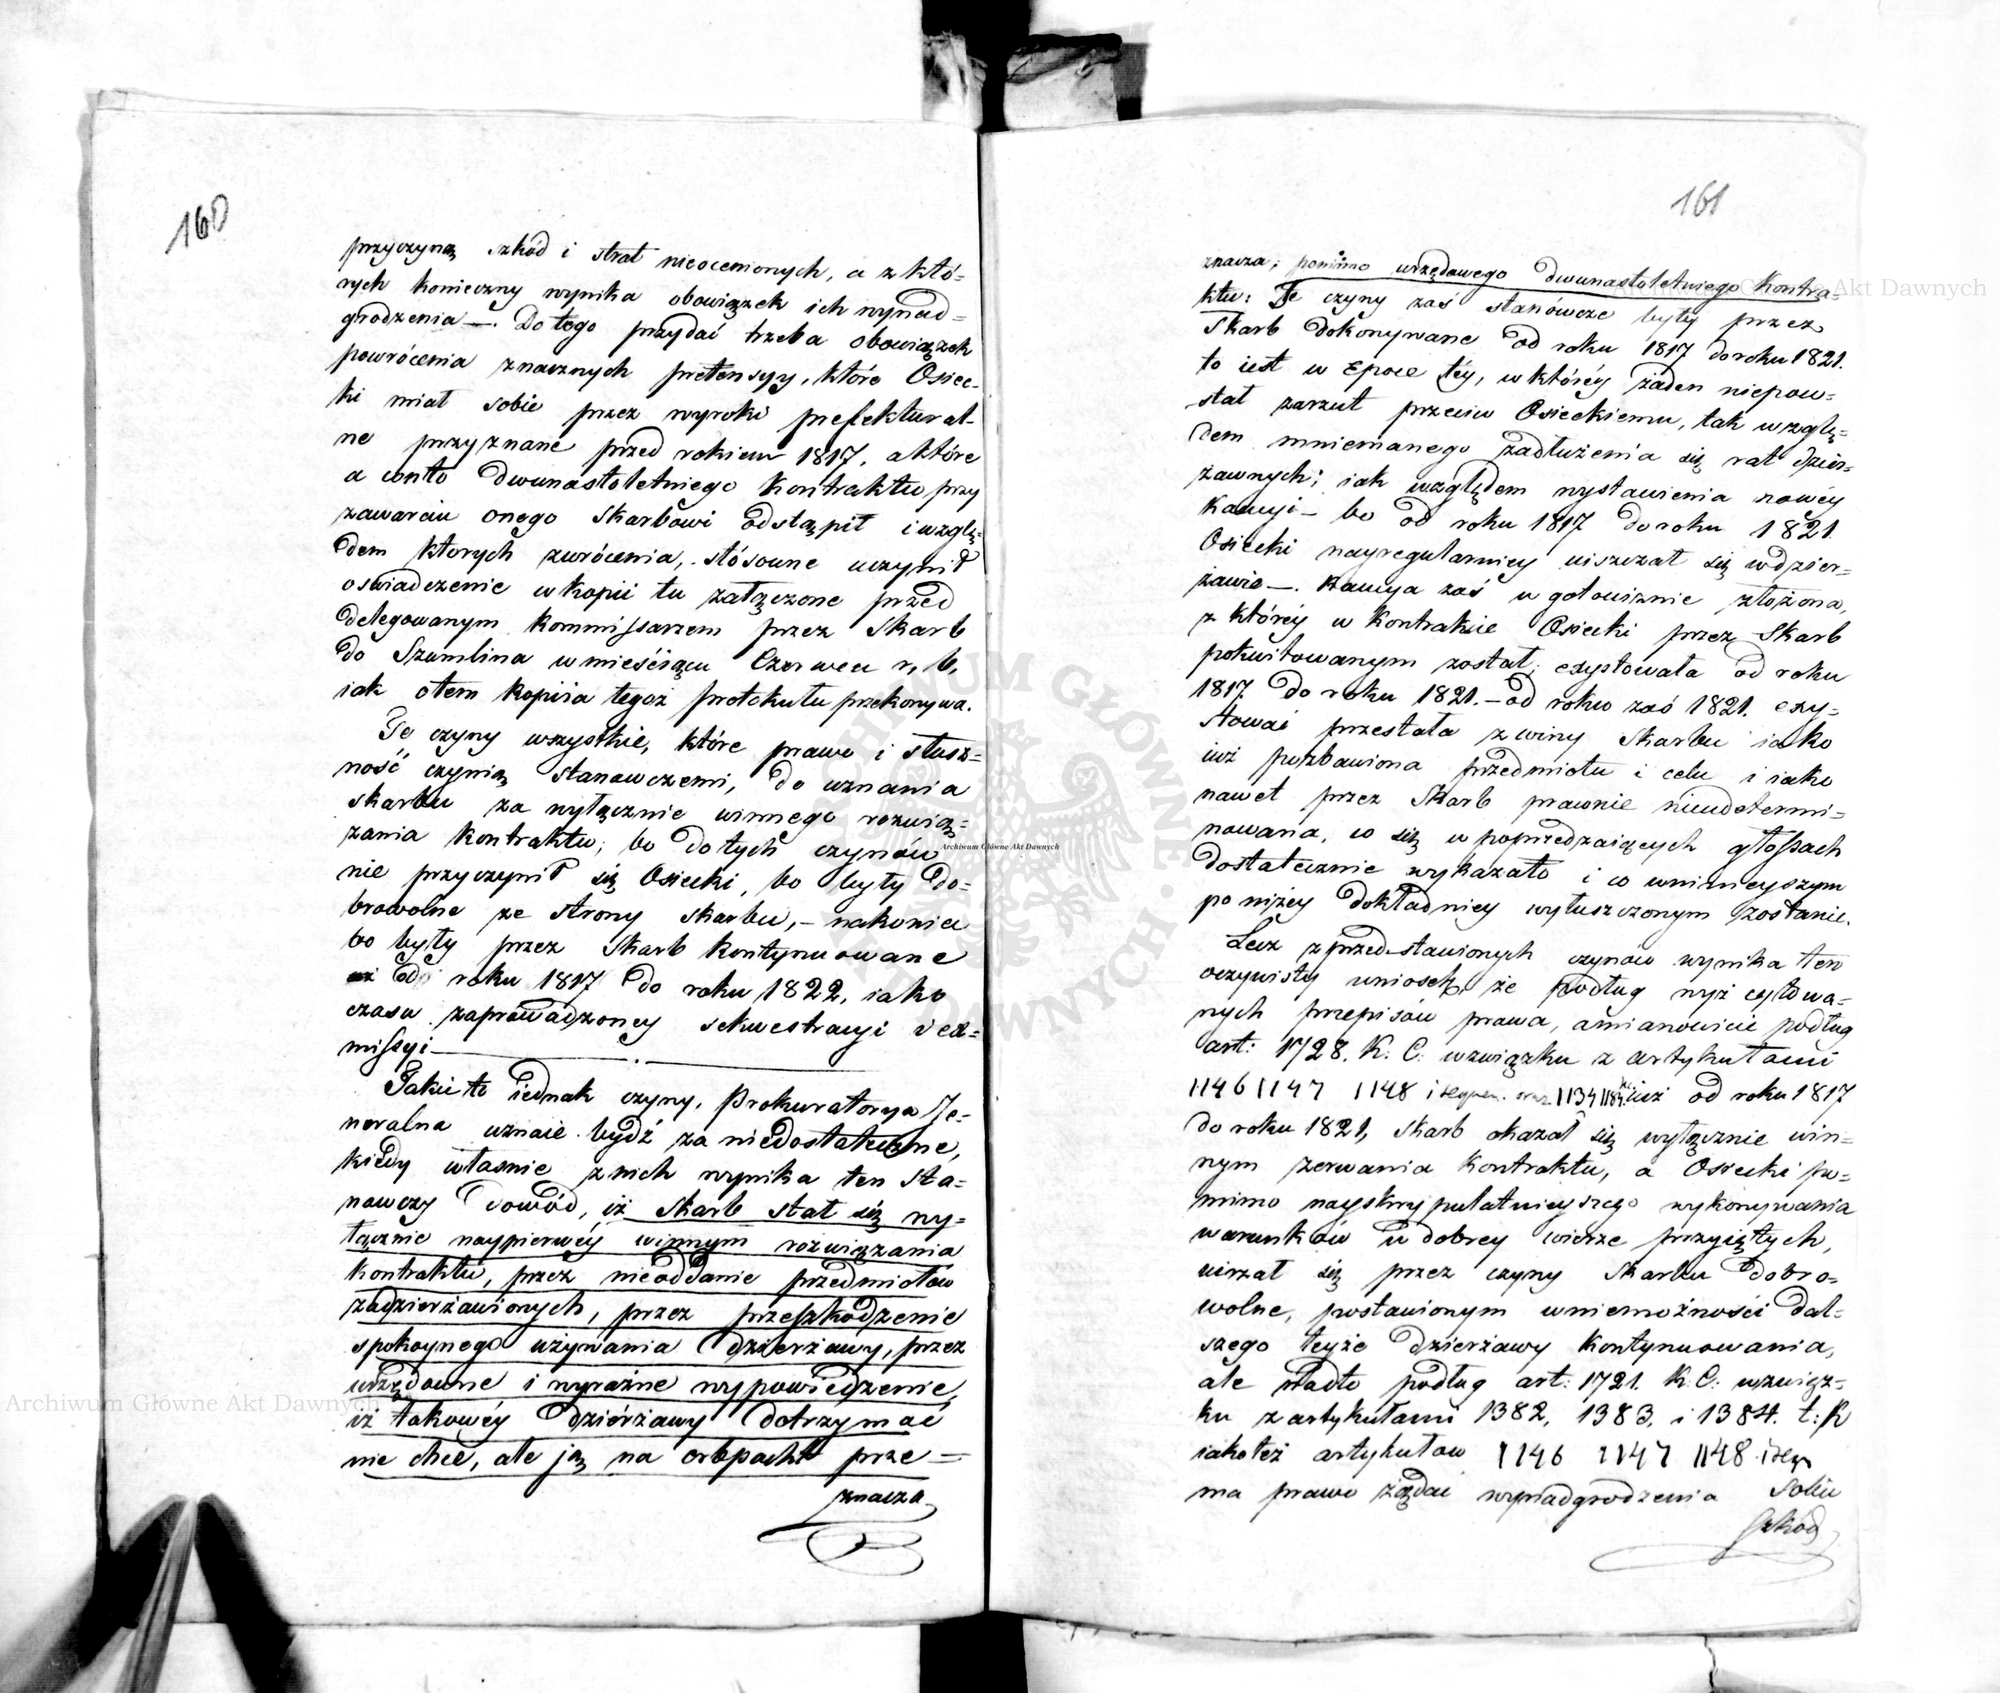 160
przyczyną szkód i strat nieocenionych, a z któ-
rych konieczny wynika obowiązek ich wynad=
grodzenia —. Do tego przydać trzeba obowiązek
powrócenia znacznych pretensyy, które Osiec-
ki miał sobie przez wyroki prefektural-
ne przyznane przed rokiem 1817, a które
a conto dwunastoletniego Kontraktu przy
zawarciu onego Skarbowi odstąpił i wzglę=
dem ktorych zwrócenia, stósowne uczynił
oswiadczenie w kopii tu załączone przed
delegowanym Kommissarzem przez Skarb
do Szumlina w mieśiącu Czerwcu r. b.
iak otem kopiia tegoż protokułu przekonywa.
Te czyny wszystkie, które prawo i słusz=
ność czynią stanowczemi, do uznania
skarbu za wyłącznie winnego rozwią=
zania kontraktu; bo do tych czynów
nie przyczynił się Osiecki, bo były do=
browolne ze strony skarbu, — nakoniec
bo były przez Skarb kontynuowane
od roku 1817 do roku 1822, iako
czasu zaprowadzoney sekwestracyi i ex=
missyi —
Takie to iednak czyny, Prokuratorya Je-
neralna uznaie bydź za niedostateczne,
kiedy własnie z nich wynika ten sta=
nowczy dowód, iż Skarb stał się wy=
łącznie naypierwéy winnym rozwiązania
kontraktu, przez nieoddanie przedmiotów
zadzierżawionych, przez przeszkodzenie
spokoynego używania dzierżawy, przez
urzędowne i wyraźne wypowiedzenie,
iż takowéy dzierżawy dotrzymać
nie chce, ale ją na erbpacht prze =
znacza
161
znacza; pomimo urzędowego dwunastoletniego Kontra=
ktu: Te czyny zaś stanówcze były przez
Skarb dokonywane od roku 1817 do roku 1821.
to iest w Epoce téy, w któréy żaden niepow=
stał zarzut przeciw Osieckiemu, tak wzglę=
dem mniemanego zadłużenia się rat dzier=
żawnych; iak względem wystawienia nowéy
Kaucyi — bo od roku 1817 do roku 1821.
Osiecki nayregularniey uiszczał się w dzier=
żawie —. Kaucya zaś w gotowiznie złożona,
z któréy w Kontrakcie Osiecki przez Skarb
pokwitowanym został; exystowała od roku
1817 do roku 1821. — od roku zaś 1821. exy=
stować przestała z winy Skarbu iako
iuż pozbawiona przedmiotu i celu i iako
nawet przez Skarb prawnie nieudetermi=
nowana, co się w poprzedzaiących głossach
dostatecznie wykazało i co w ninieyszym
poniżey dokładniey wyłuszczonym zostanie.
Lecz z przedstawionych czynów wynika ten
oczywisty wniosek, że podług wyż cytowa=
nych przepisów prawa, a mianowicie podług
art: 1728. K: C: w związku z artykułami
1146 1147 1148 i sequen. oraz 1134 1184 iuż od roku 1817
do roku 1821, Skarb okazał się wyłącznie win=
nym zerwania Kontraktu, a Osiecki po=
mimo nayskrypulatnieyszego wykonywania
warunków w dobrey wierze przyiętych,
uirzał się przez czyny Skarbu dobro=
wolne, postawionym w niemożności dal=
szego teyże dzierżawy kontynuowania,
ale nadto podług art: 1721. K. C: w związ=
ku z artykułami 1382, 1383, i 1384. t: K
iakoteż artykułow 1146 1147 1148 i seq
ma prawo żądać wynadgrodzenia Sobie
szkód